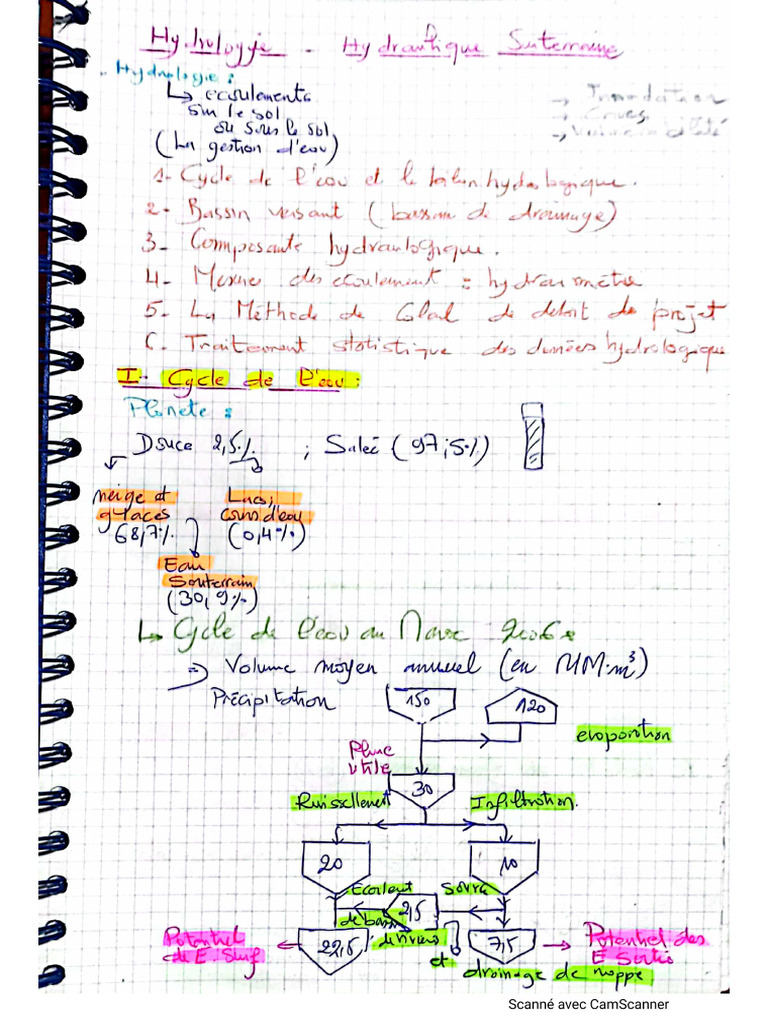 Hydrologie - Hydraulique Suterraine
Hydrologie :
↳ ecoulements
sur le sol
ou sous le sol
(La gestion d'eau)
→ Inondation
→ Crues
→ Vulnerabilité
1- Cycle de l'eau et le bilan hydrologique.
2- Bassin versant (bassin de drainage)
3- Composante hydraulogique.
4- Mesures des ecoulement = hydrométrie
5- La Méthode de Calcul de debit de projet
6. Traitement statistique des données hydrologique
I- Cycle de l'eau :
Planete :
Douce 2,5% ; Saleé (97,5%)
neige et
glaces
68,7%
Lacs,
cours d'eau
(0,4%)
Eau
Souterrain
(30,9%)
↳ Cycle de l'eau au Maroc
⇒ Volume moyen annuel (en MM.m³)
Précipitation
150
120
evaporation
Pluie
utile
30
Ruissellement
Infiltration.
20
10
Ecoulent
Source
2,5
de base
de rivières
22,5
7,5
Potentiel
de E. Surf
et
drainage de nappe
Potentiel des
E
Scanné avec CamScanner